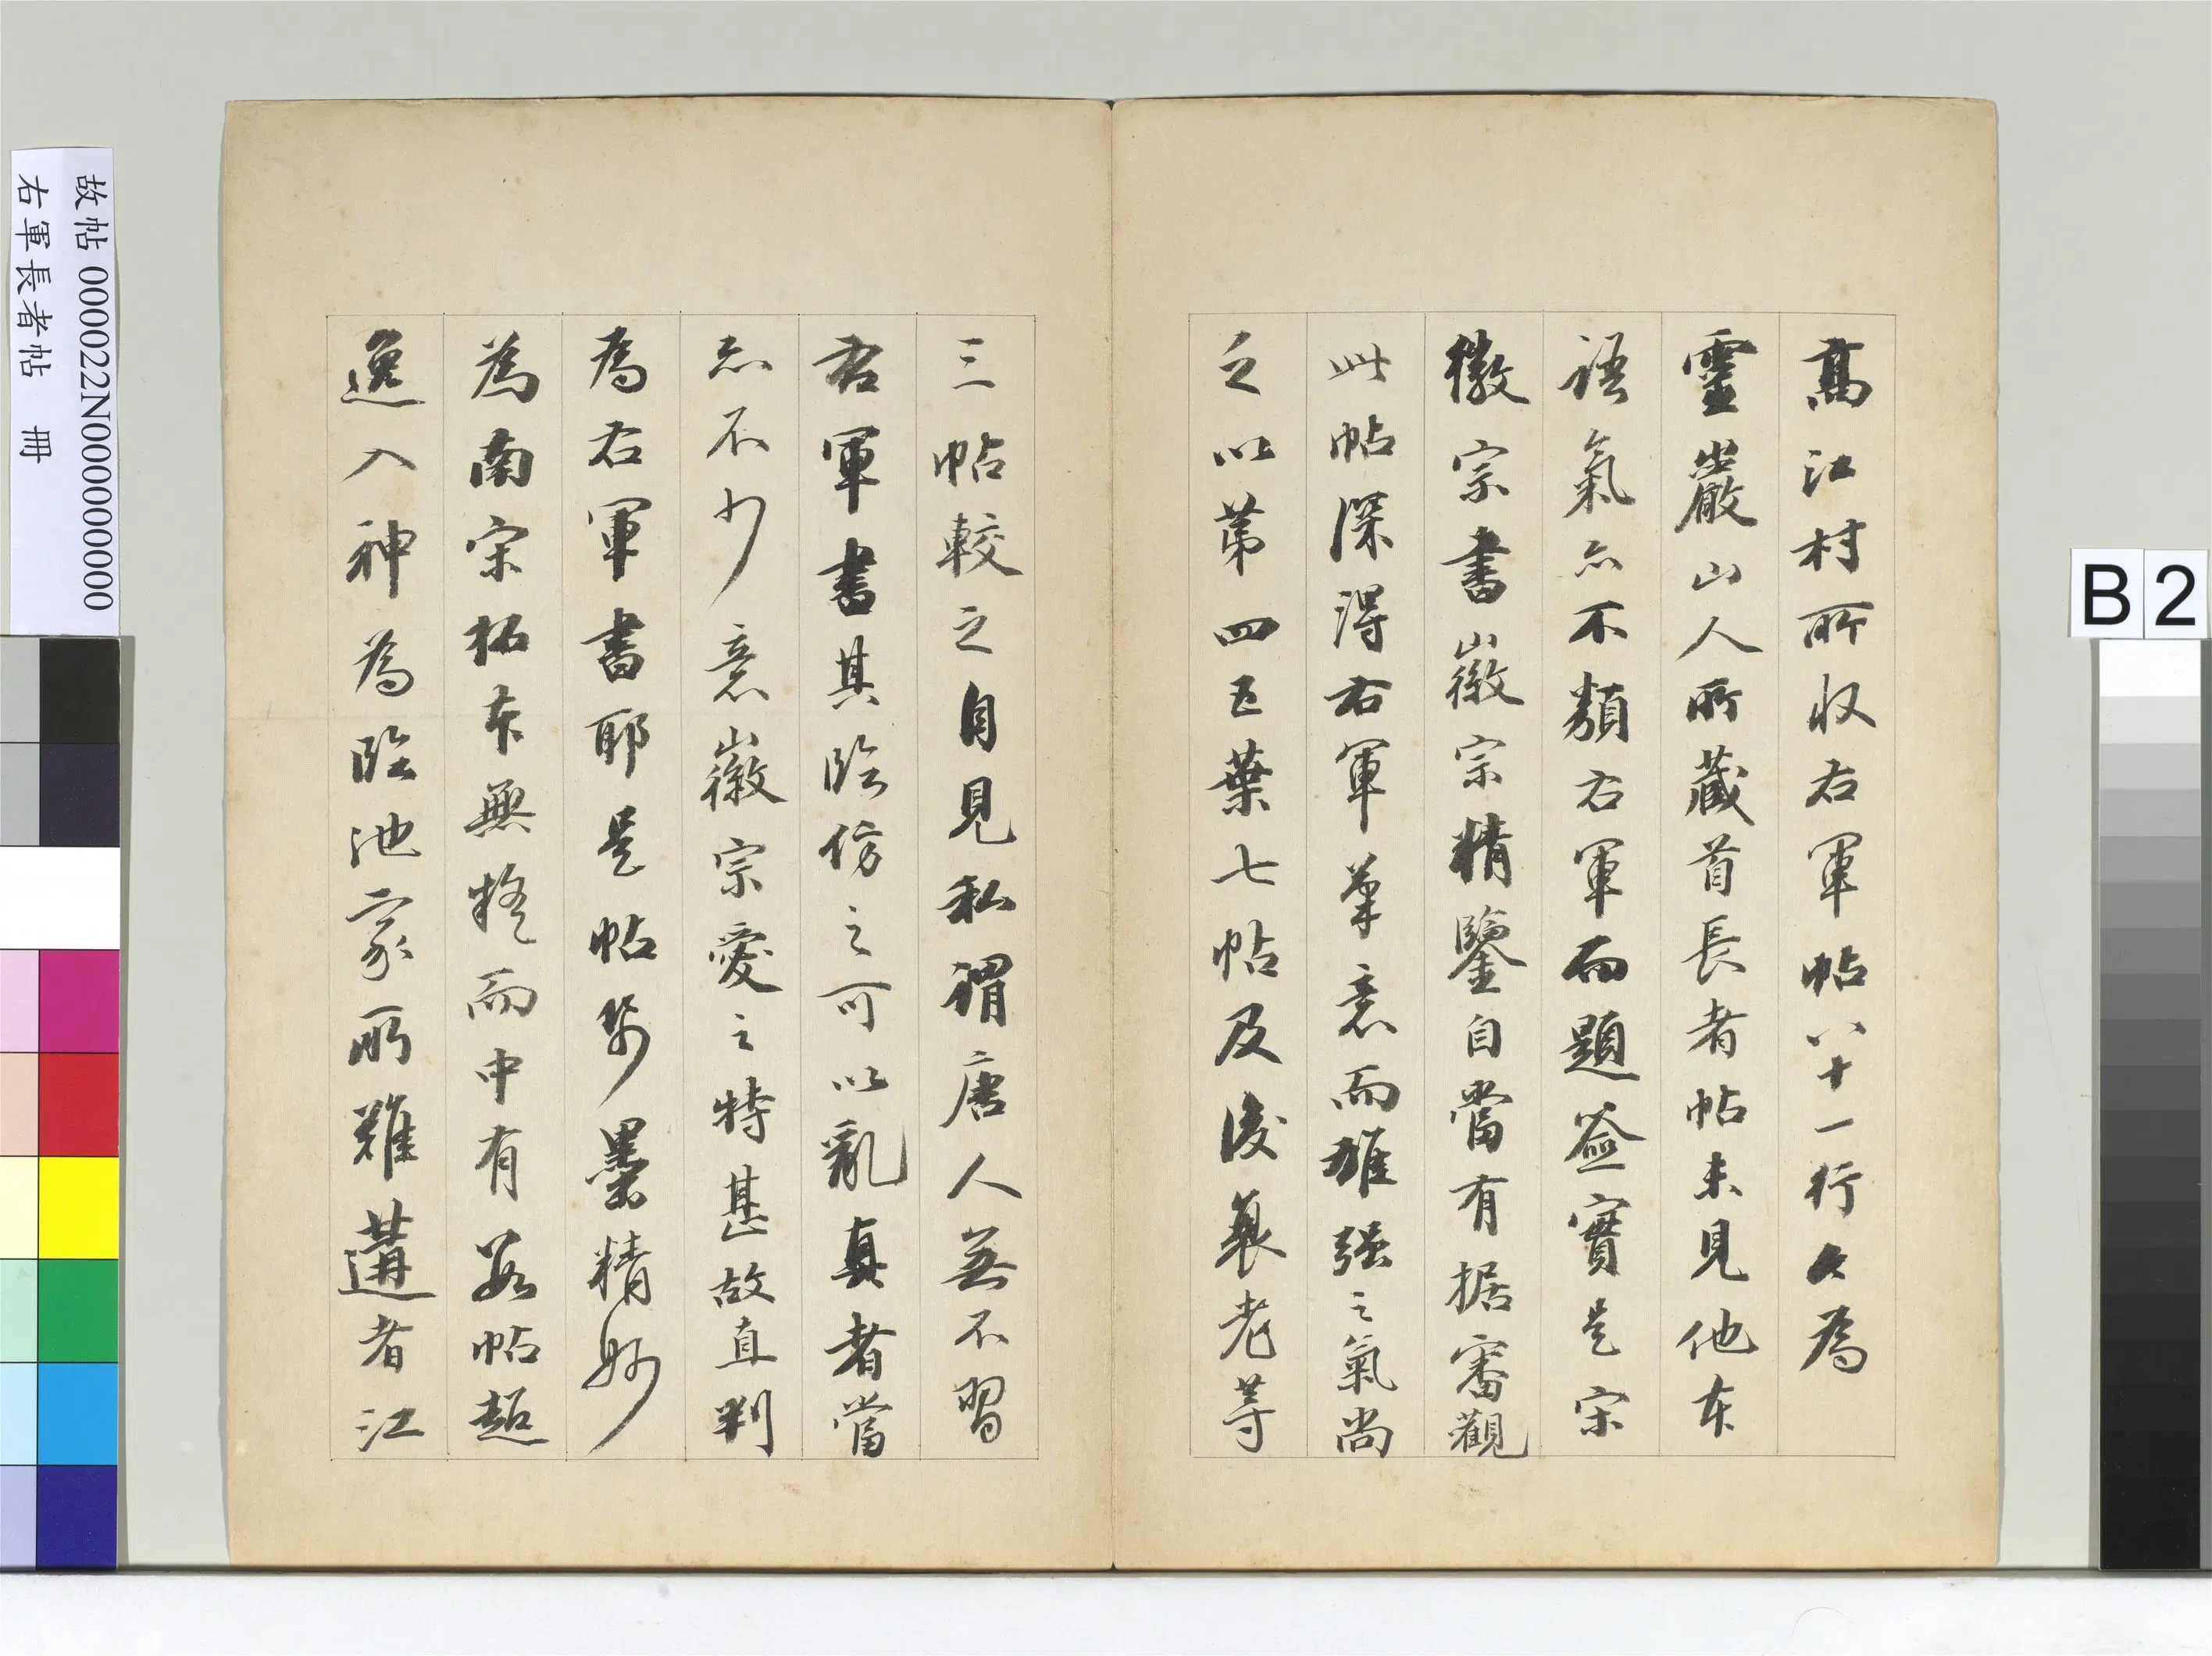 高江村所收右軍帖八十一行今為
靈巖山人所藏首長者帖未見他本
語氣亦不類右軍而題簽實是宋
徽宗書徽宗精鑒自當有据審觀
此帖深得右軍筆意而雄强之氣尚
乏以第四五葉七帖及後裴老等
三帖較之自見私謂唐人無不習
右軍書其臨仿之可以亂真者當
亦不少意徽宗愛之特甚故直判
為右軍書耶是帖紙墨精妙
為南宋拓本無疑而中有數帖超
逸入神為臨池家所難遘者江
故帖 000022N000000000
右軍長者帖 冊
B 2